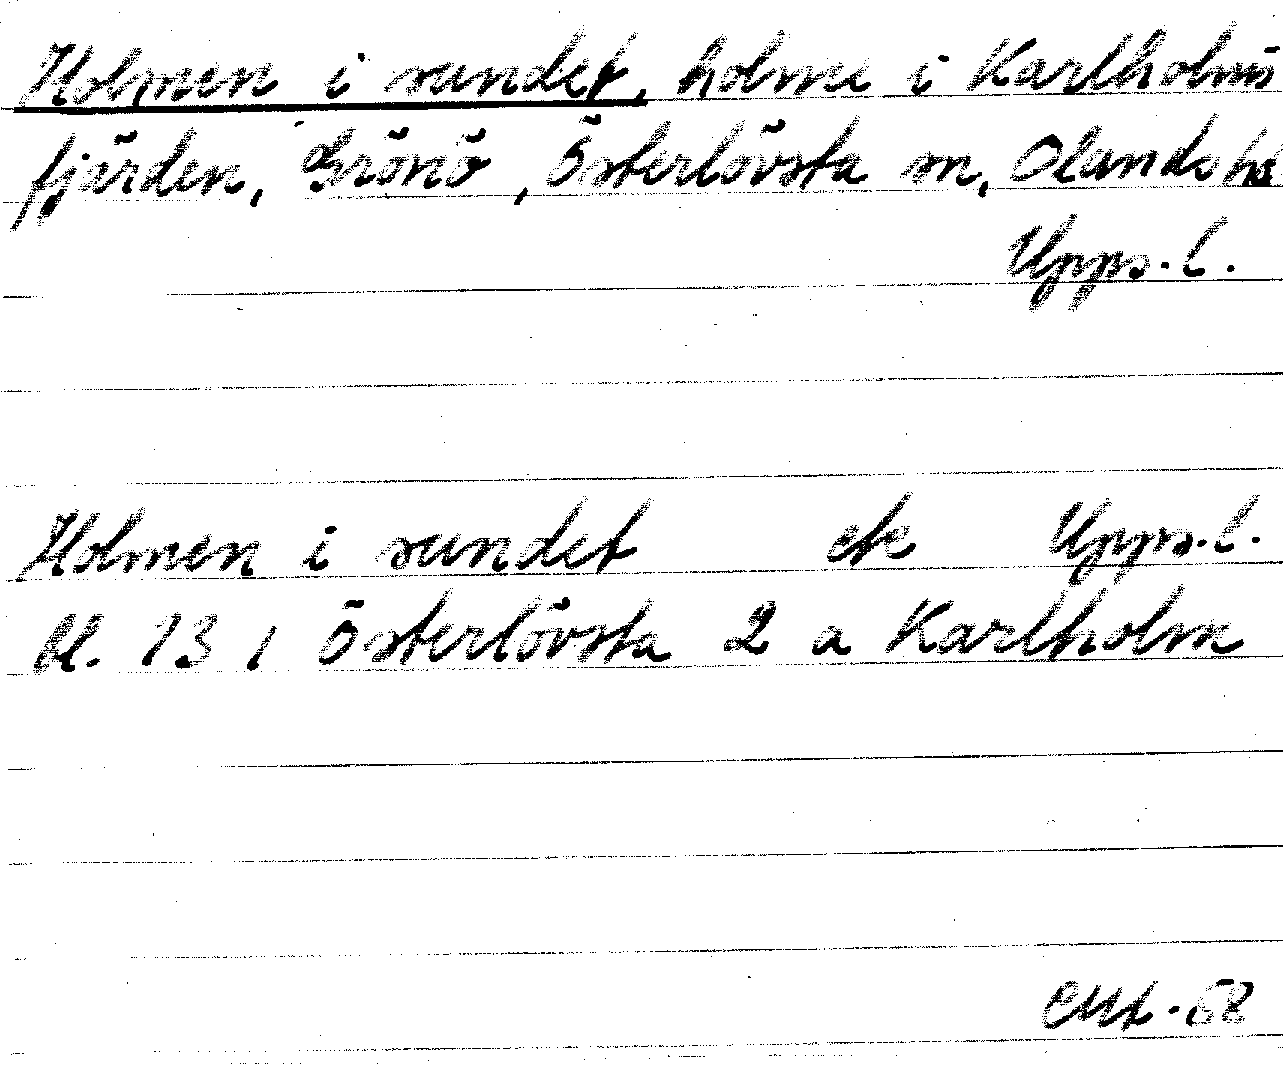 Holmen i sundet, holme i Karlholms
fjärden, Grönö, Österlövsta sn, Olands hd
Upps. l.
Holmen i sundet ek Upps. l.
bl. 13 1 Österlövsta 2 a Karlholm